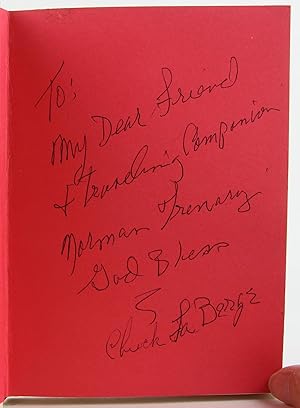 To:
My Dear Friend
& Traveling Companion
Norman Trenary.
God Bless
Chuck La Berge